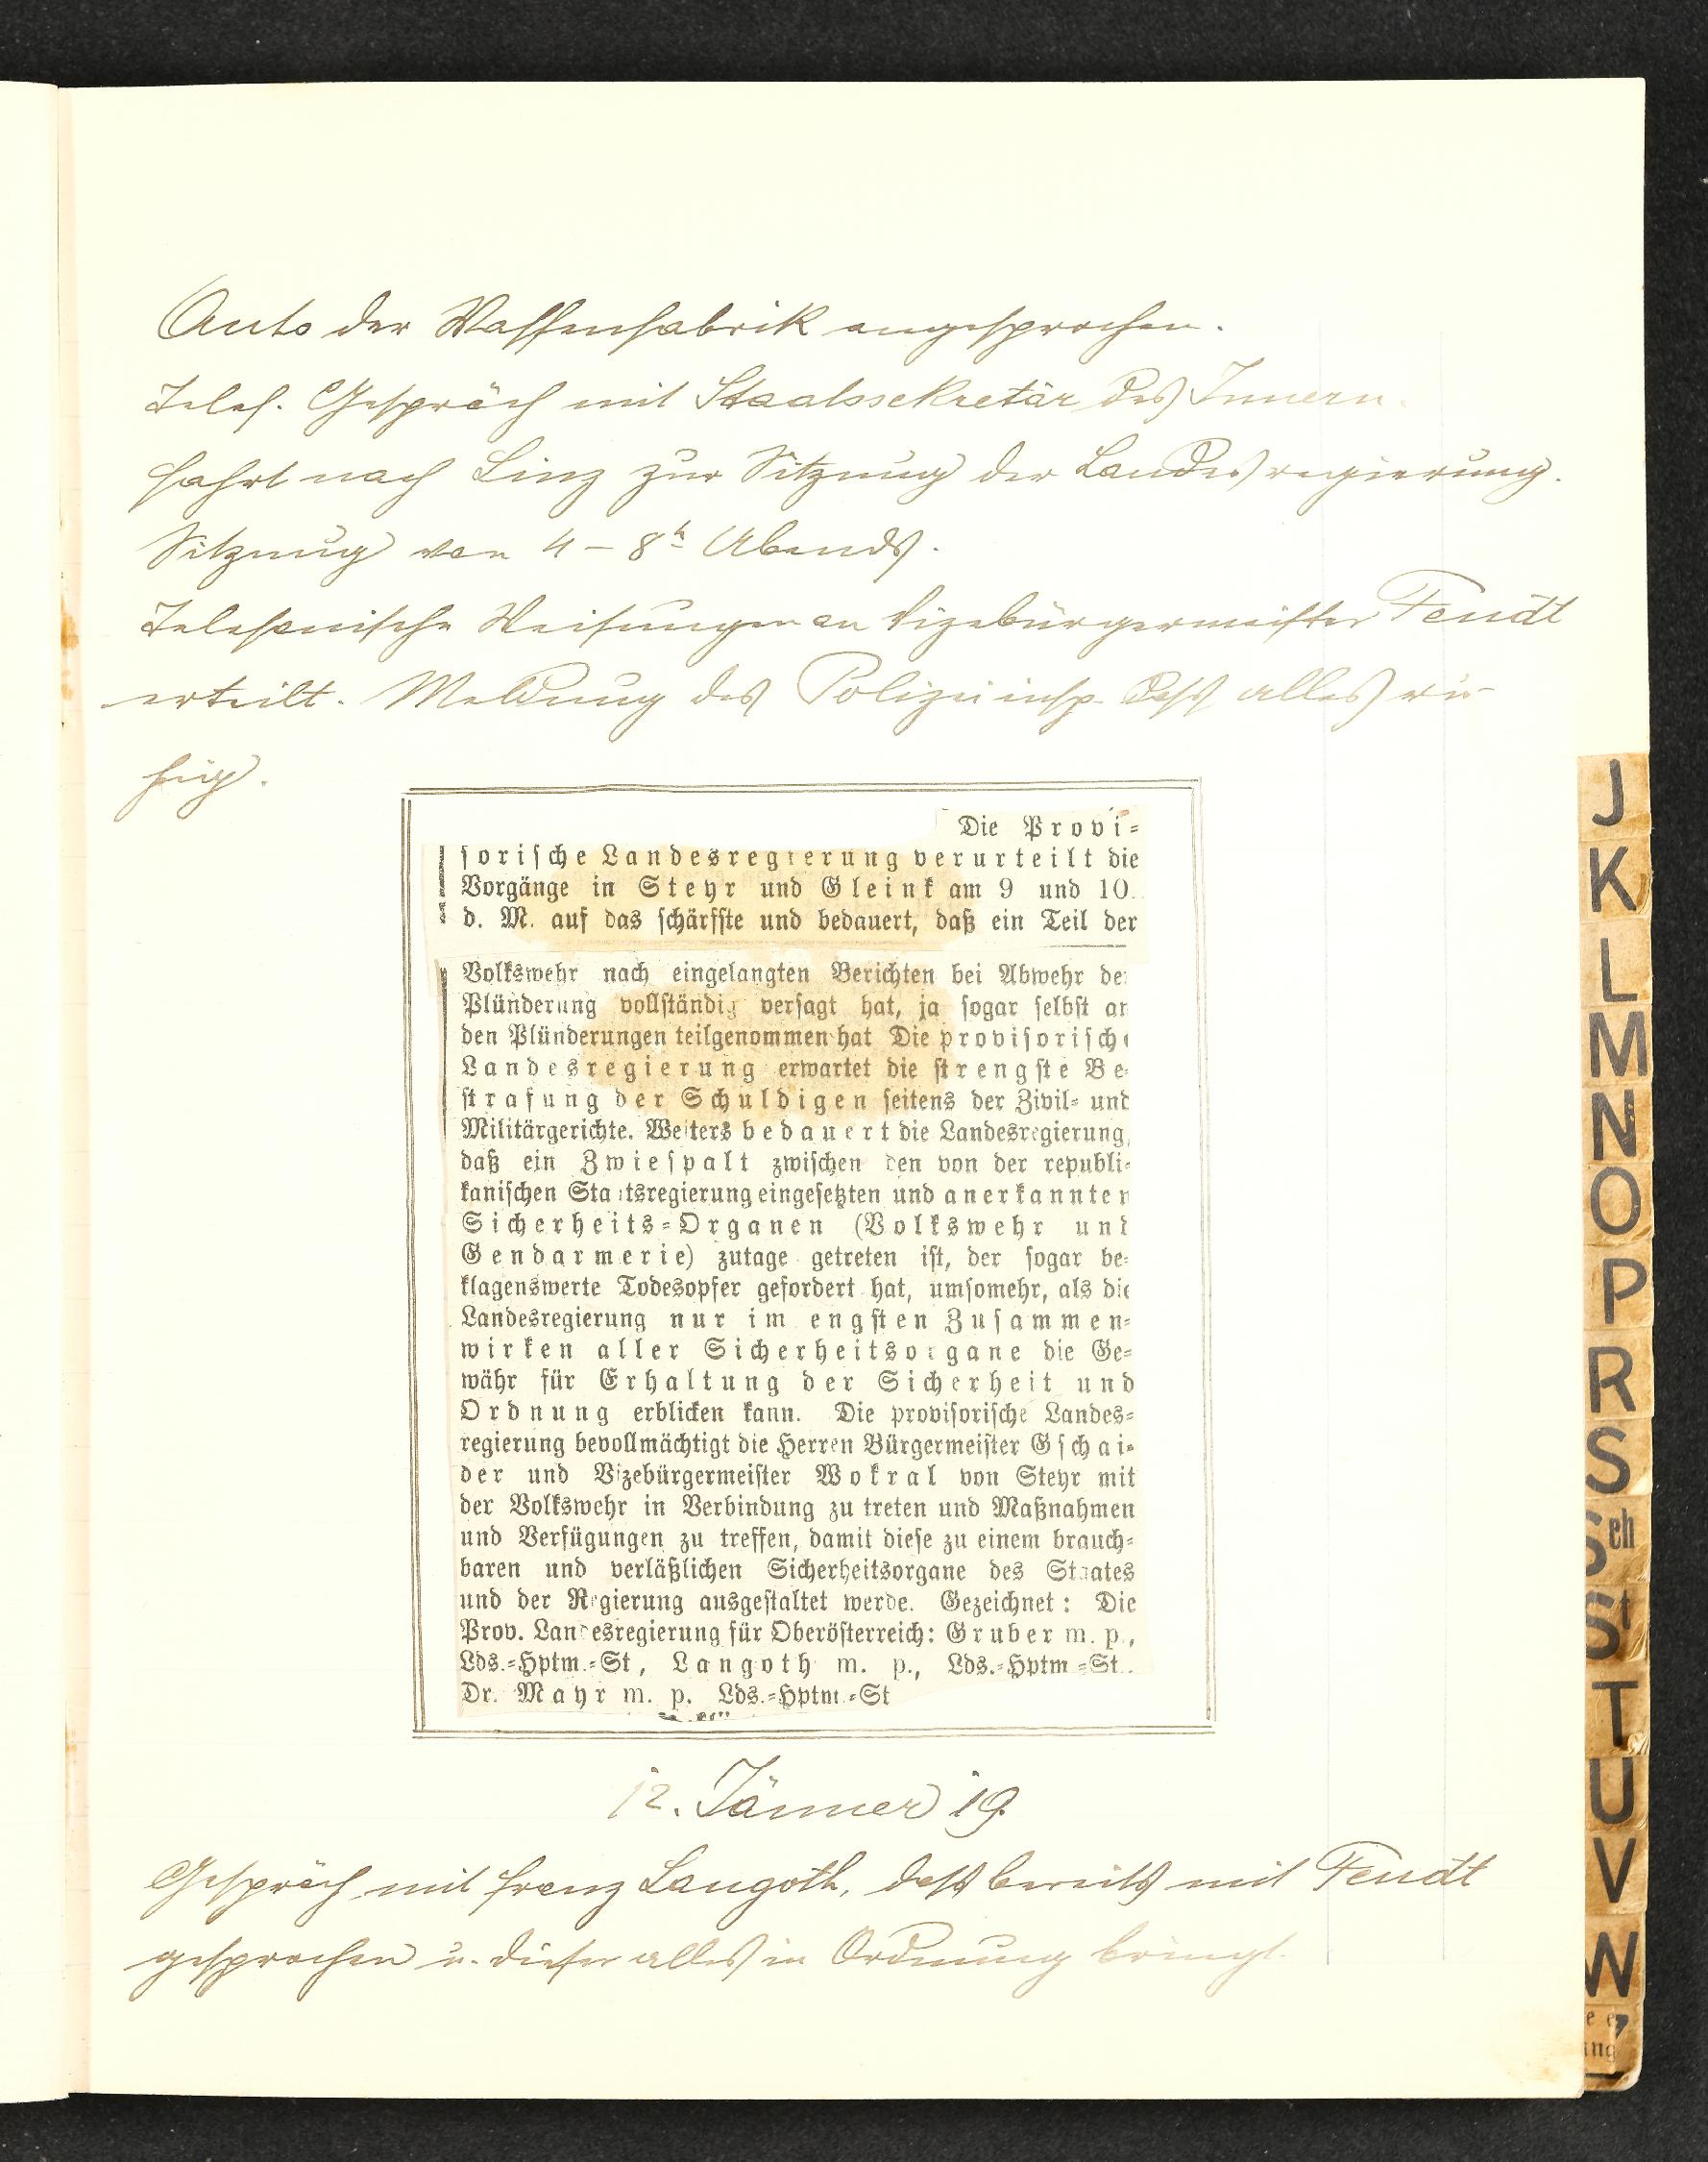 Auto der Waffenfabrik angesprochen.
Telef. Gespräch mit Staatssekretär des Innern.
Fahrt nach Linz zur Sitzung der Landesregierung.
Sitzung von 4 – 8h Abends.
Telefonische Weisungen an Vizebürgermeister Fendt
erteilt. Meldung des Polizeiinsp. dass alles ru-
hig.
Die Provi-
sorische Landesregierung verurteilt die
Vorgänge in Steyr und Gleink am 9 und 10.
d. M. auf das schärfste und bedauert, daß ein Teil der
Volkswehr nach eingelangten Berichten bei Abwehr de
Plünderung vollständig versagt hat, ja sogar selbst an
den Plünderungen teilgenommen hat Die provisorische
Landesregierung erwartet die strengste Be-
strafung der Schuldigen seitens der Zivil- und
Militärgerichte. Weiters bedauert die Landesregierung,
daß ein Zwiespalt zwischen den von der republi-
kanischen Staatsregierung eingesetzten und anerkannten
Sicherheits-Organen (Volkswehr und
Gendarmerie) zutage getreten ist, der sogar be-
klagenswerte Todesopfer gefordert hat, umsomehr, als die
Landesregierung nur im engsten Zusammen-
wirken aller Sicherheitsorgane die Ge-
währ für Erhaltung der Sicherheit und
Ordnung erblicken kann. Die provisorische Landes-
regierung bevollmächtigt die Herren Bürgermeister Gschai-
der und Vizebürgermeister Wokral von Steyr mit
der Volkswehr in Verbindung zu treten und Maßnahmen
und Verfügungen zu treffen, damit diese zu einem brauch-
baren und verläßlichen Sicherheitsorgane des Staates
und der Regierung ausgestaltet werde. Gezeichnet: Die
Prov. Landesregierung für Oberösterreich: Gruber m. p.,
Lds.-Hptm.-St, Langoth m. p., Lds.-Hptm-St.
Dr. Mayr m. p. Lds.-Hptm.-St
12. Jänner 19.
Gespräch mit Franz Langoth, dass bereits mit Fendt
gesprochen u. dieser alles in Ordnung bringt.
J
K
L
M
N
O
P
R
S
Sch
St
T
U
V
W